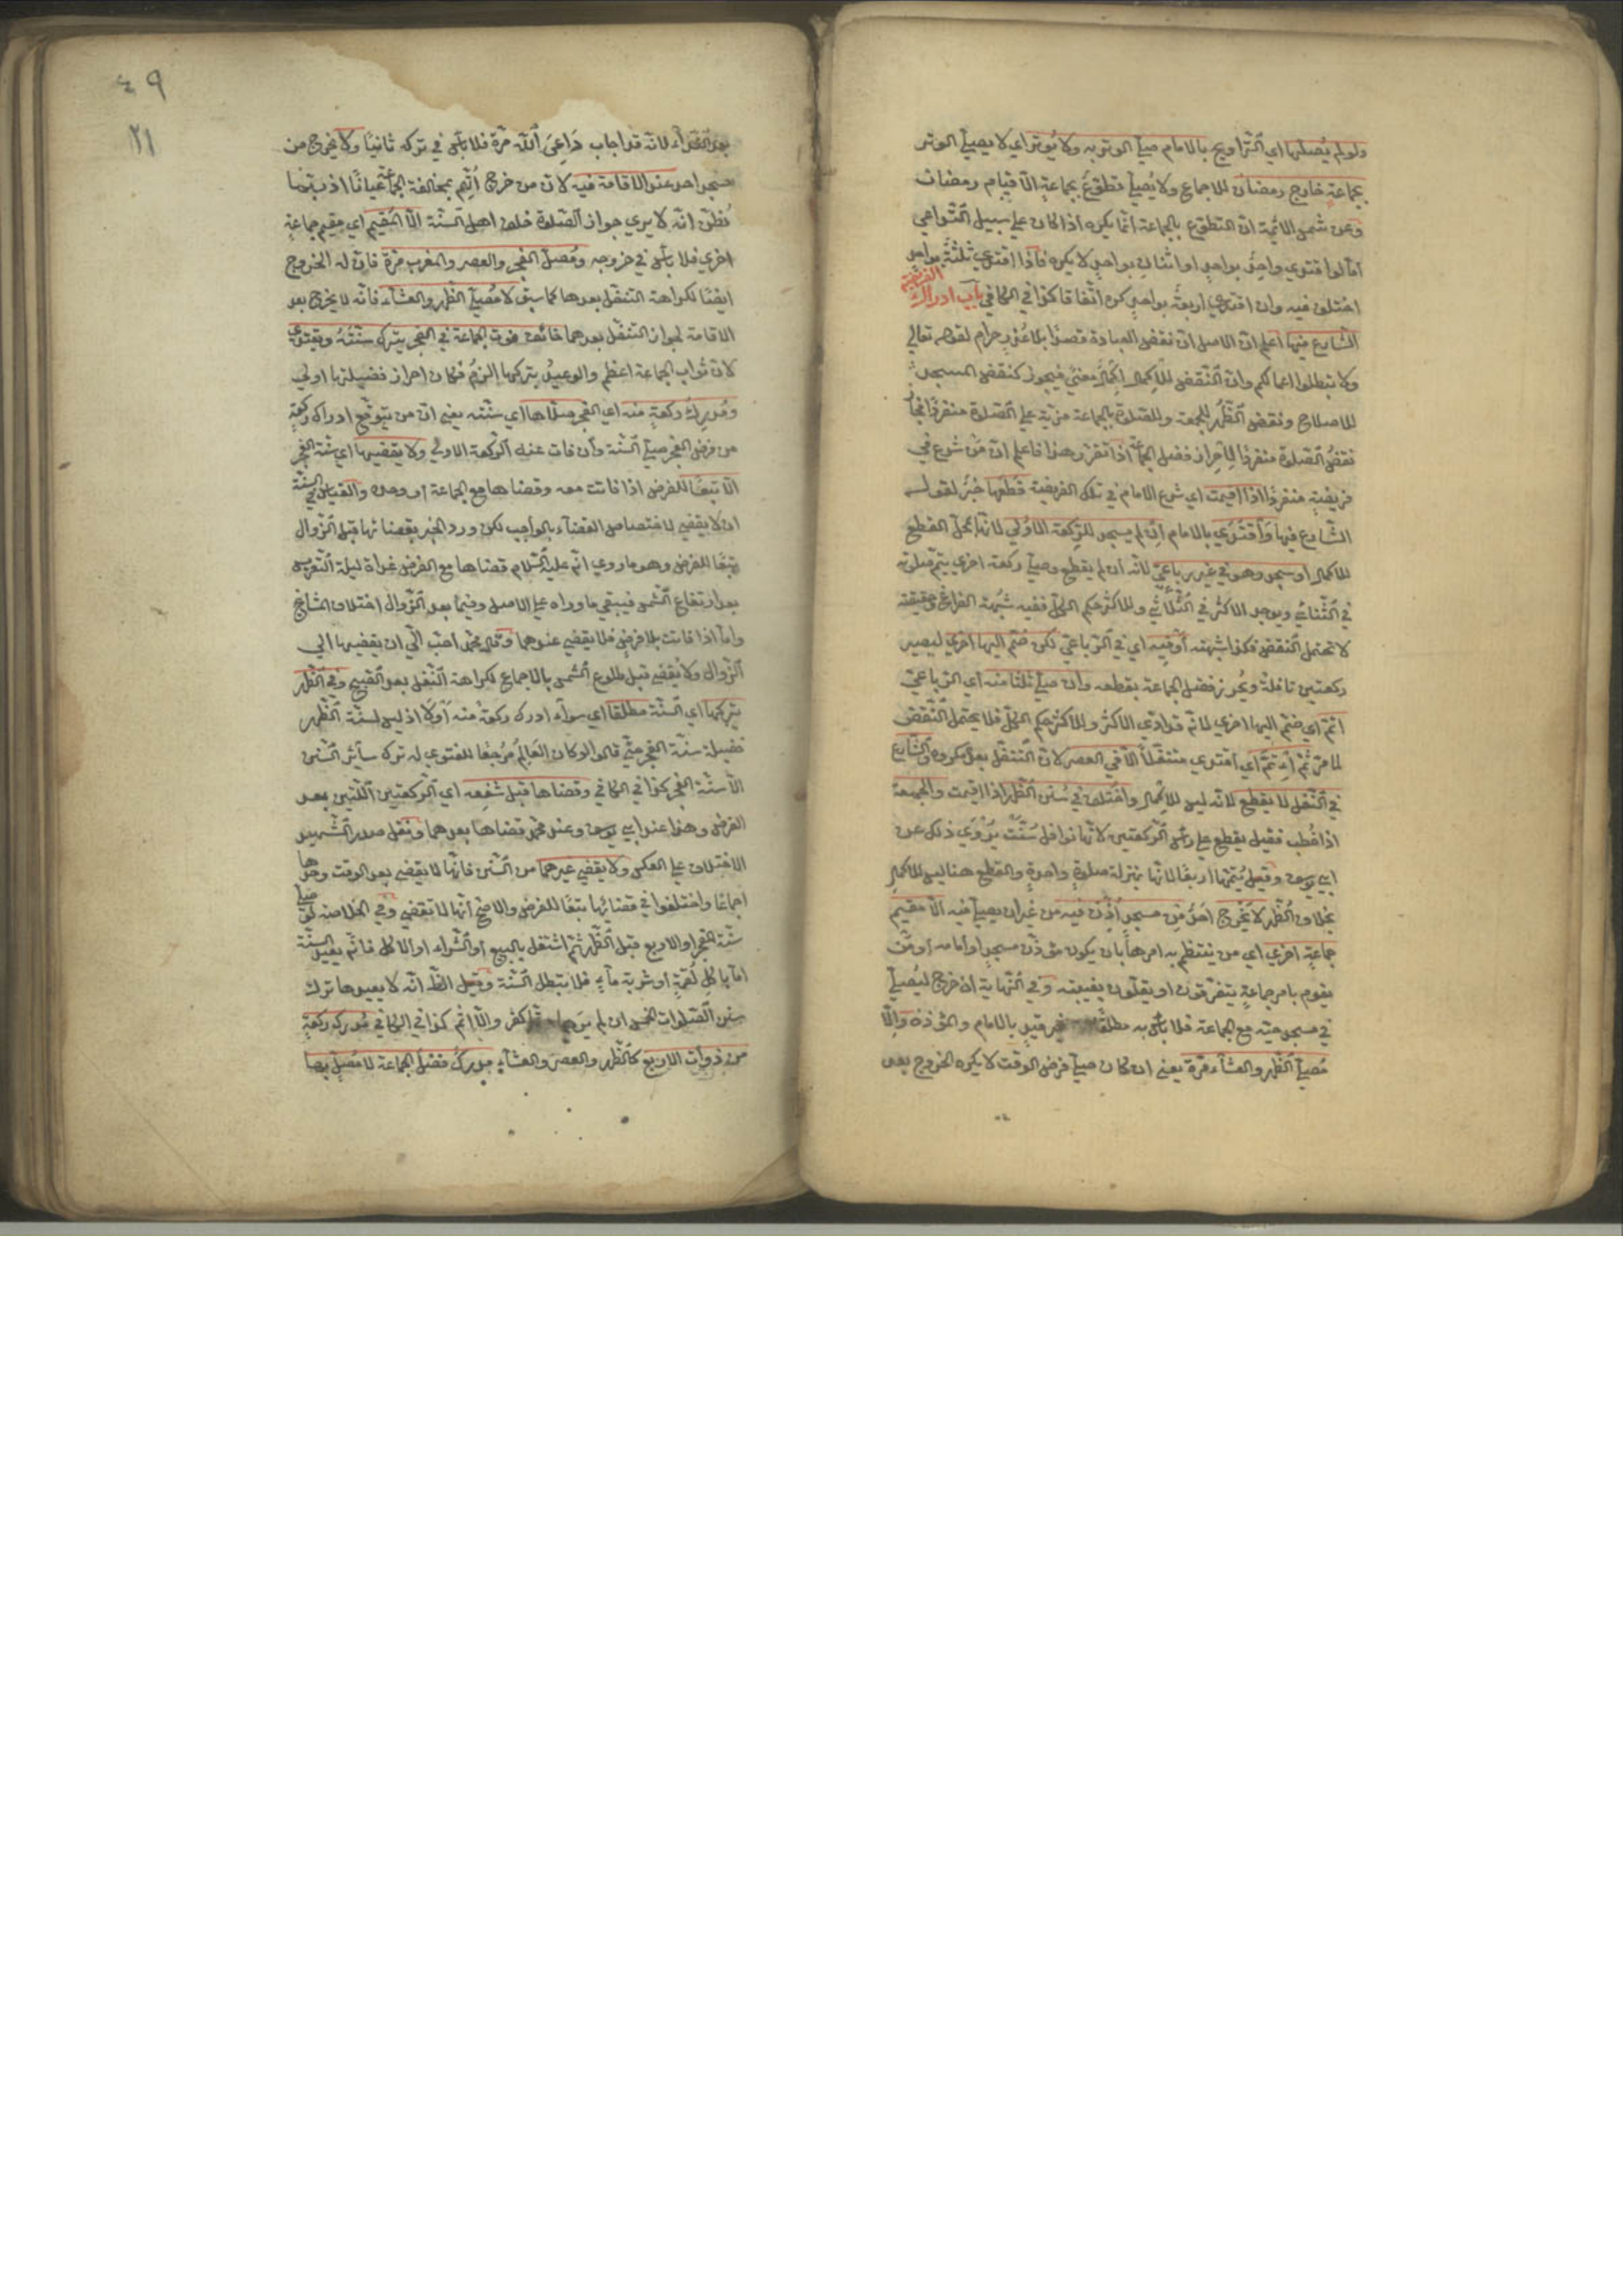 ولو لم يصلها اي التراويح بالامام صلى الوتر به ولا يوتر اي لا يصلي الوتر
بجماعة خارج رمضان للاجماع ولا يصلي تطوع بجماعة الا قيام رمضان
وعن شمس الائمة ان التطوع بالجماعة انما يكره اذا كان على سبيل التواعي
اما لو اقتدي واحد بواحد او اثنان بواحد لا يكره فاذا اقتدي ثلثة بواحد
اختلف فيه وان اقتدي اربعة بواحد كره اتفاقا كذا في الكافي باب ادراك الفريضة
الشارع فيها اعلم ان الاصل ان نقض العبادة قصدا بلا عذر حرام لقوله تعالى
ولا تبطلوا اعمالكم وان النقض للاكمال اكمال معنى فيجوز كنقض المسجد
للاصلاح ونقض الظهر للجمعة وللصلوة بالجماعة مزية على الصلوة منفردا فجاز
نقض الصلوة منفردا لاحراز فضل الجماعة اذا تقرر هذا فاعلم ان من شرع في
فريضة منفردا اذا اقيمت اي شرع الامام في تلك الفريضة قطعها خبر لقوله
الشارع فيها واقتدي بالامام ان لم يسجد للركعة الاولي لانها بمحل القطع
للاكمال او سجد وهو في غير رباعي لانه ان لم يقطع وصلي ركعة اخري يتم صلوته
في الثنائي ويوجد الاكثر في الثلاثي وللاكثر حكم الكل ففيه شبهة الفراغ وحقيقته
لا تحتمل النقض فكذا شبهته او فيه اي في الرباعي لكن ضم اليها اخري ليصير
ركعتين نافلة ويحرز فضل الجماعة بقطعه وان صلي ثلثا منه اي الرباعي
اتم اي ضم اليها اخري لانه قد ادي الاكثر وللاكثر حكم الكل فلا يحتمل النقض
لما مر ثم ائتم اي اقتدي متنفلا الا في العصر لان التنفل بعده مكروه والشارع
في النفل لا يقطع لانه ليس للاكمال واختلف في سنن الظهر اذا اقيمت والجمعة
اذا خطب فقيل يقطع على راس الركعتين لانها نوافل سنت يروي ذلك عن
ابي يوسف وقيل يتمها اربعا لانها بمنزلة صلوة واحدة والقطع هنا ليس للاكمال
بخلاف الظهر لا يخرج احد من مسجد اذن فيه من غير ان يصلي فيه الا مقيم
جماعة اخري اي من ينتظم به امرها بان يكون مؤذن مسجد او امامه او من
يقوم بامر جماعة يتفرقون او يقلون بغيبته وفي النهاية ان خرج ليصلي
في مسجد حيه مع الجماعة فلا باس به مطلقا من غير قيد بالامام والمؤذن والا
مصلي الظهر والعشاء مرة يعني ان كان صلي فرض الوقت لا يكره الخروج بعد
٤٩
٢١
بعد النداء لانه قد اجاب داعي الله مرة فلا باس في تركه ثانيا ولا يخرج من
مسجد احد عند الاقامة فيه لان من خرج اتهم بمخالفة الجماعة عيانا اذ ربما
يظن انه لا يري جواز الصلوة خلف اهل السنة الا المقيم اي مقيم جماعة
اخري فلا باس في خروجه ومصلي الفجر والعصر والمغرب مرة فان له الخروج
ايضا لكراهة التنفل بعدها كما سبق لا مصلي الظهر والعشاء فانه لا يخرج بعد
الاقامة لجواز التنفل بعدهما خائف فوت الجماعة في الفجر يترك سنته ويقتدي
لان ثواب الجماعة اعظم والوعيد بتركها الزم فكان احراز فضيلتها اولي
ومدرك ركعة منه اي الفجر صلاها اي سنته يعني ان من يتوقع ادراك ركعة
من فرض الفجر صلي السنة وان فات عنه الركعة الاولي ولا يقضيها اي سنة الفجر
الا تبعا للفرض اذا فاتت معه وقضاها مع الجماعة او وحده والقياس في السنة
ان لا يقضي لاختصاص القضاء بالواجب لكن ورد الخبر بقضائها قبل الزوال
تبعا للفرض وهو ما روي انه عليه السلام قضاها مع الفرض غداة ليلة التعريس
بعد ارتفاع الشمس فيبقي ما وراه علي الاصل وفيما بعد الزوال اختلاف المشايخ
واما اذا فاتت بلا فرض فلا يقضي عندهما وقال محمد احب الي ان يقضيها الي
الزوال ولا يقضي قبل طلوع الشمس بالاجماع لكراهة النفل بعد الصبح وفي الظهر
يتركها اي السنة مطلقا اي سواء ادرك ركعة منه او لا اذ ليس لسنة الظهر
فضيلة سنة الفجر حتي قالوا لو كان العالم مرجعا للفتوي له ترك سائر السنن
الا سنة الفجر كذا في الكافي وقضاها قبل شفعه اي الركعتين اللتين بعد
الفرض وهذا عند ابي يوسف وعند محمد قضاها بعدهما ونقل صدر الشهيد
الاختلاف على العكس ولا يقضي غيرهما من السنن فانها لا يقضي بعد الوقت وحدها
اجماعا واختلفوا في قضائها تبعا للفرض والاصح انها لا تقضي وفي الخلاصة لو صلي
سنة الفجر او الاربع قبل الظهر ثم اشتغل بالبيع او الشراء او الاكل فانه يعيد السنة
اما باكل لقمة او شربة ماء فلا تبطل السنة وقيل الظ انه لا يعيدها ترك
سنن الصلوات الخمس ان لم ير كفر والا اثم كذا في الكافي مدرك ركعة
من ذوات الاربع كالظهر والعصر والعشاء مدرك فضل الجماعة لا مصل بها